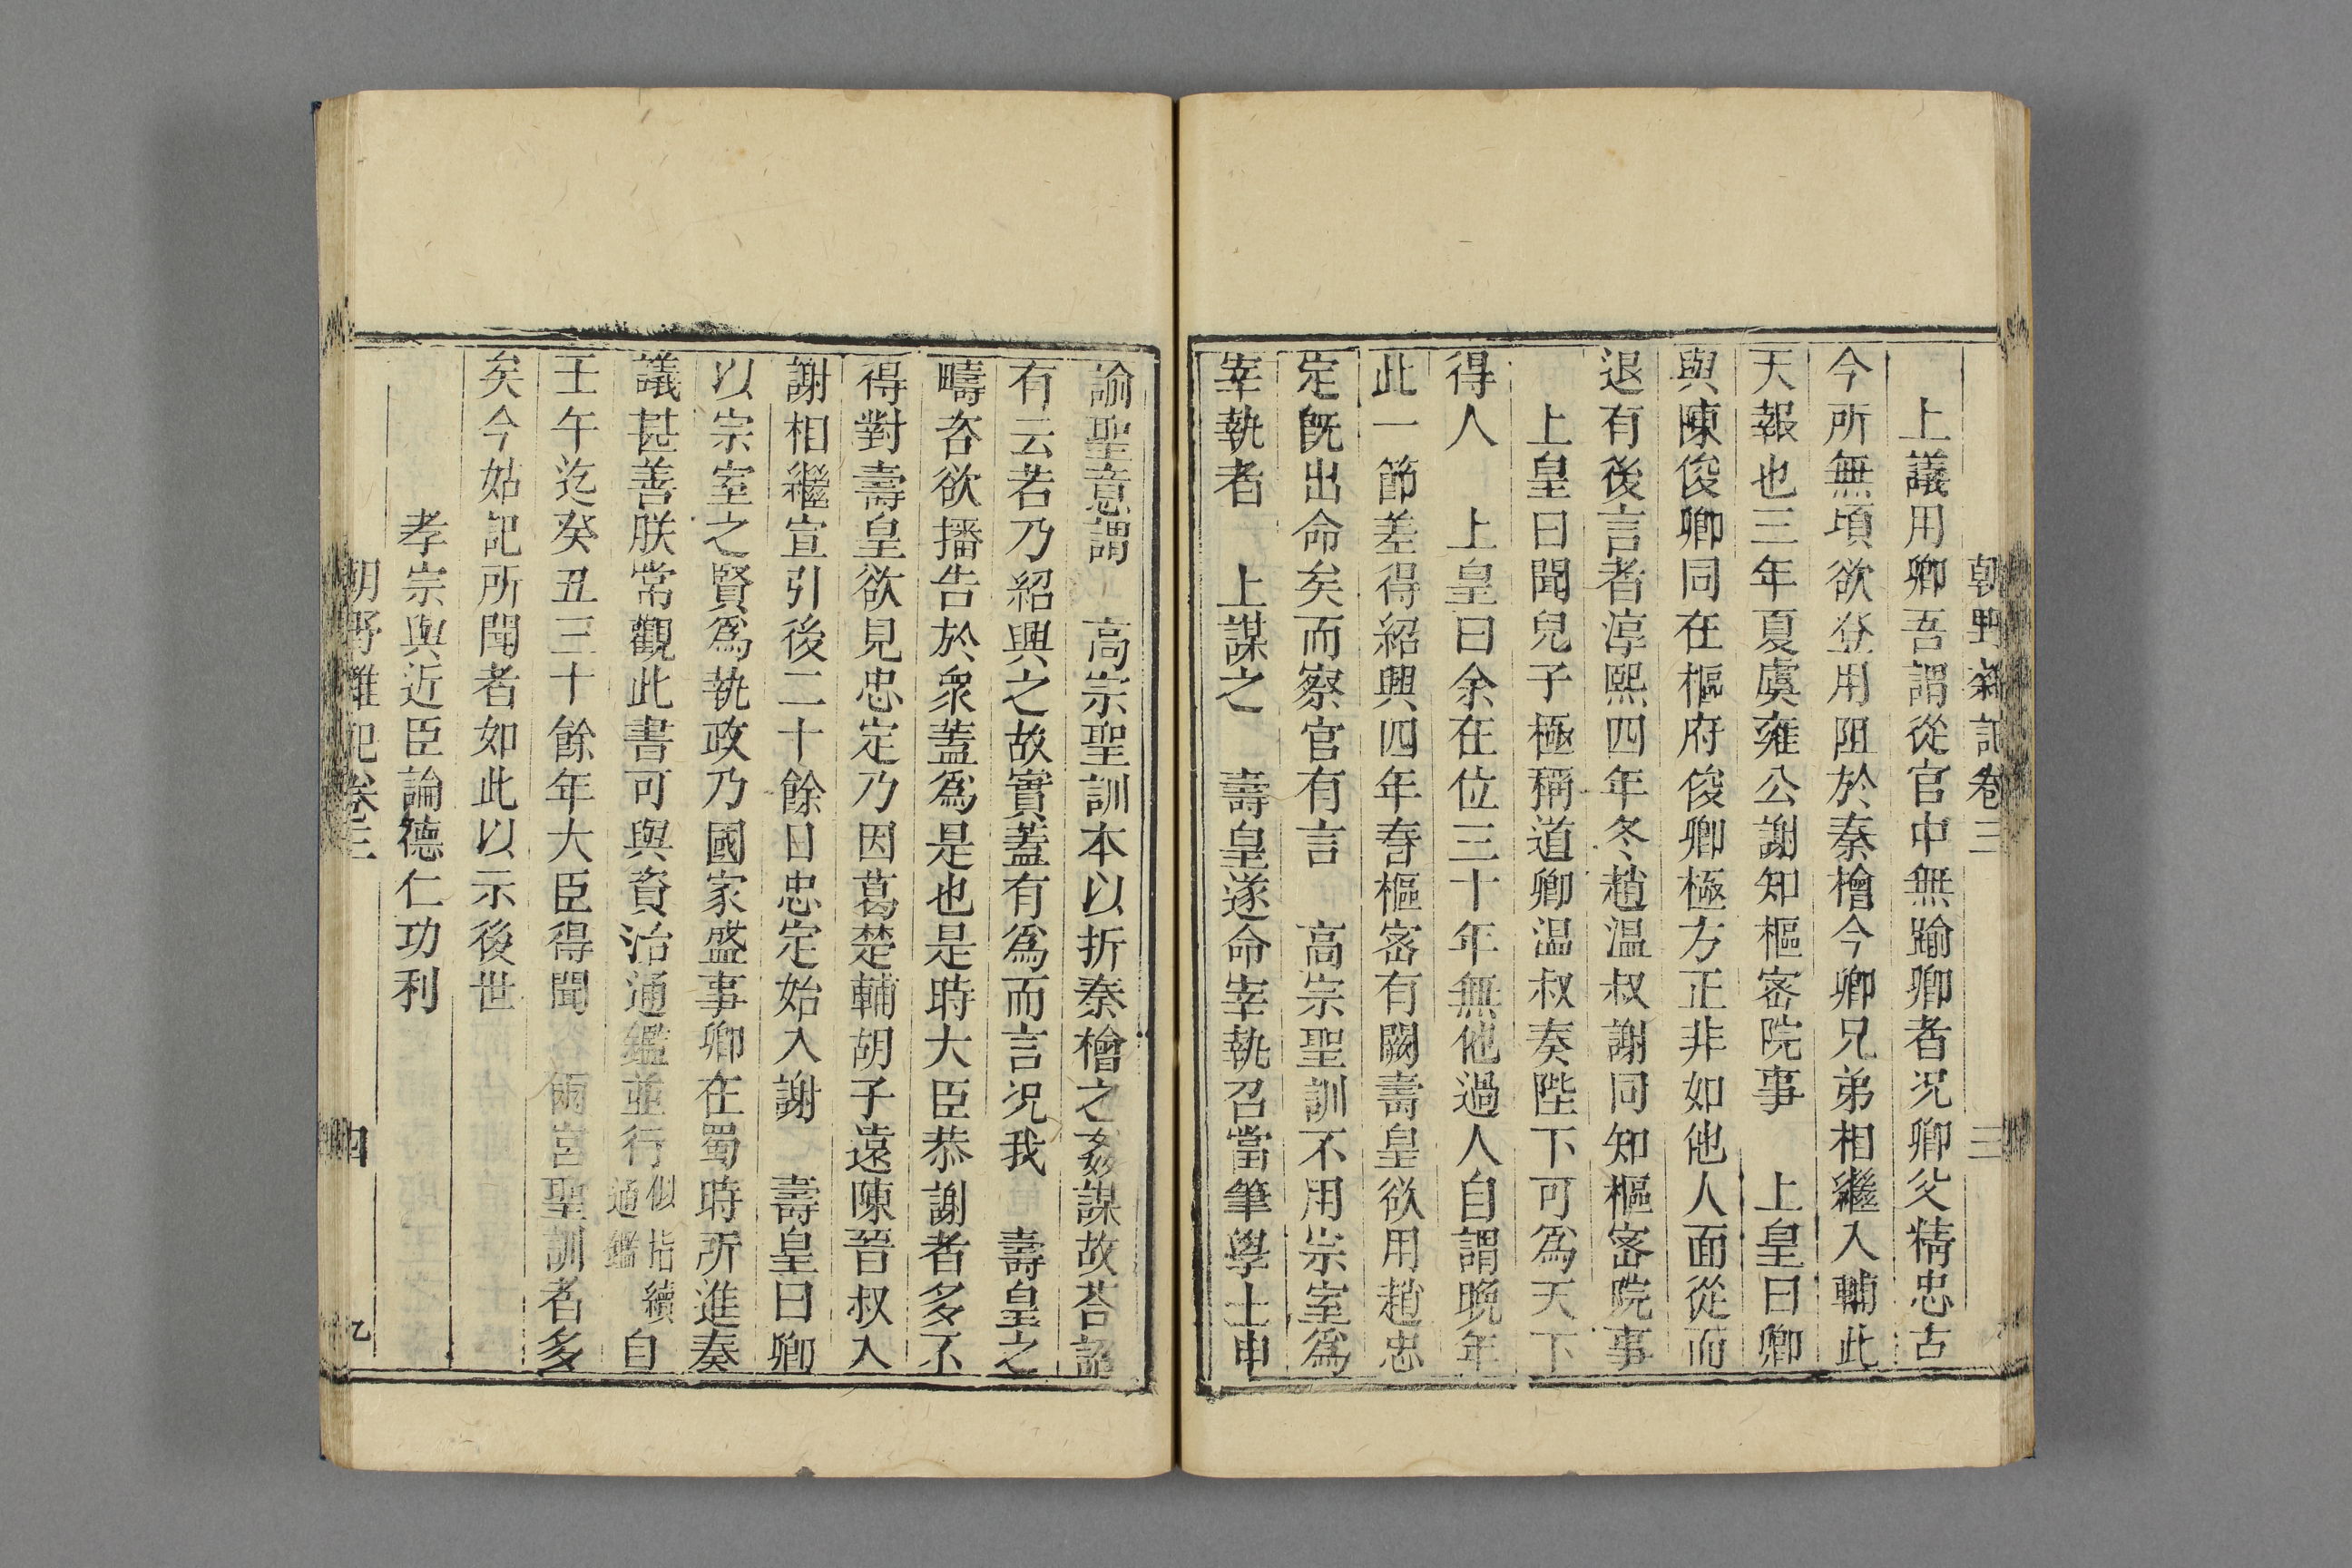 朝野雜記卷三　三
上議用卿吾謂從官中無踰卿者况卿父精忠古
今所無頃欲登用阻於秦檜今卿兄弟相繼入輔此
天報也三年夏虞雍公謝知樞密院事　上皇曰卿
與陳俊卿同在樞府俊卿極方正非如他人面從而
退有後言者淳熙四年冬趙温叔謝同知樞密院事
上皇曰聞兒子極稱道卿温叔奏陛下可爲天下
得人　上皇曰余在位三十年無他過人自謂晚年
此一節差得紹興四年春樞密有闕壽皇欲用趙忠
定旣出命矣而察官有言　高宗聖訓不用宗室爲
宰執者　上謀之　壽皇遂命宰執召當筆學士申
諭聖意謂　高宗聖訓本以折秦檜之姦謀故荅詔
有云若乃紹興之故實蓋有爲而言况我　壽皇之
疇咨欲播告於衆蓋爲是也是時大臣恭謝者多不
得對壽皇欲見忠定乃因葛楚輔胡子遠陳晉叔入
謝相繼宣引後二十餘日忠定始入謝　壽皇曰卿
以宗室之賢爲執政乃國家盛事卿在蜀時所進奏
議甚善朕常觀此書可與資治通鑑並行似指續通鑑自
壬午迄癸丑三十餘年大臣得聞　兩宮聖訓者多
矣今姑記所聞者如此以示後世
孝宗與近臣論德仁功利
朝野雜記卷三　四